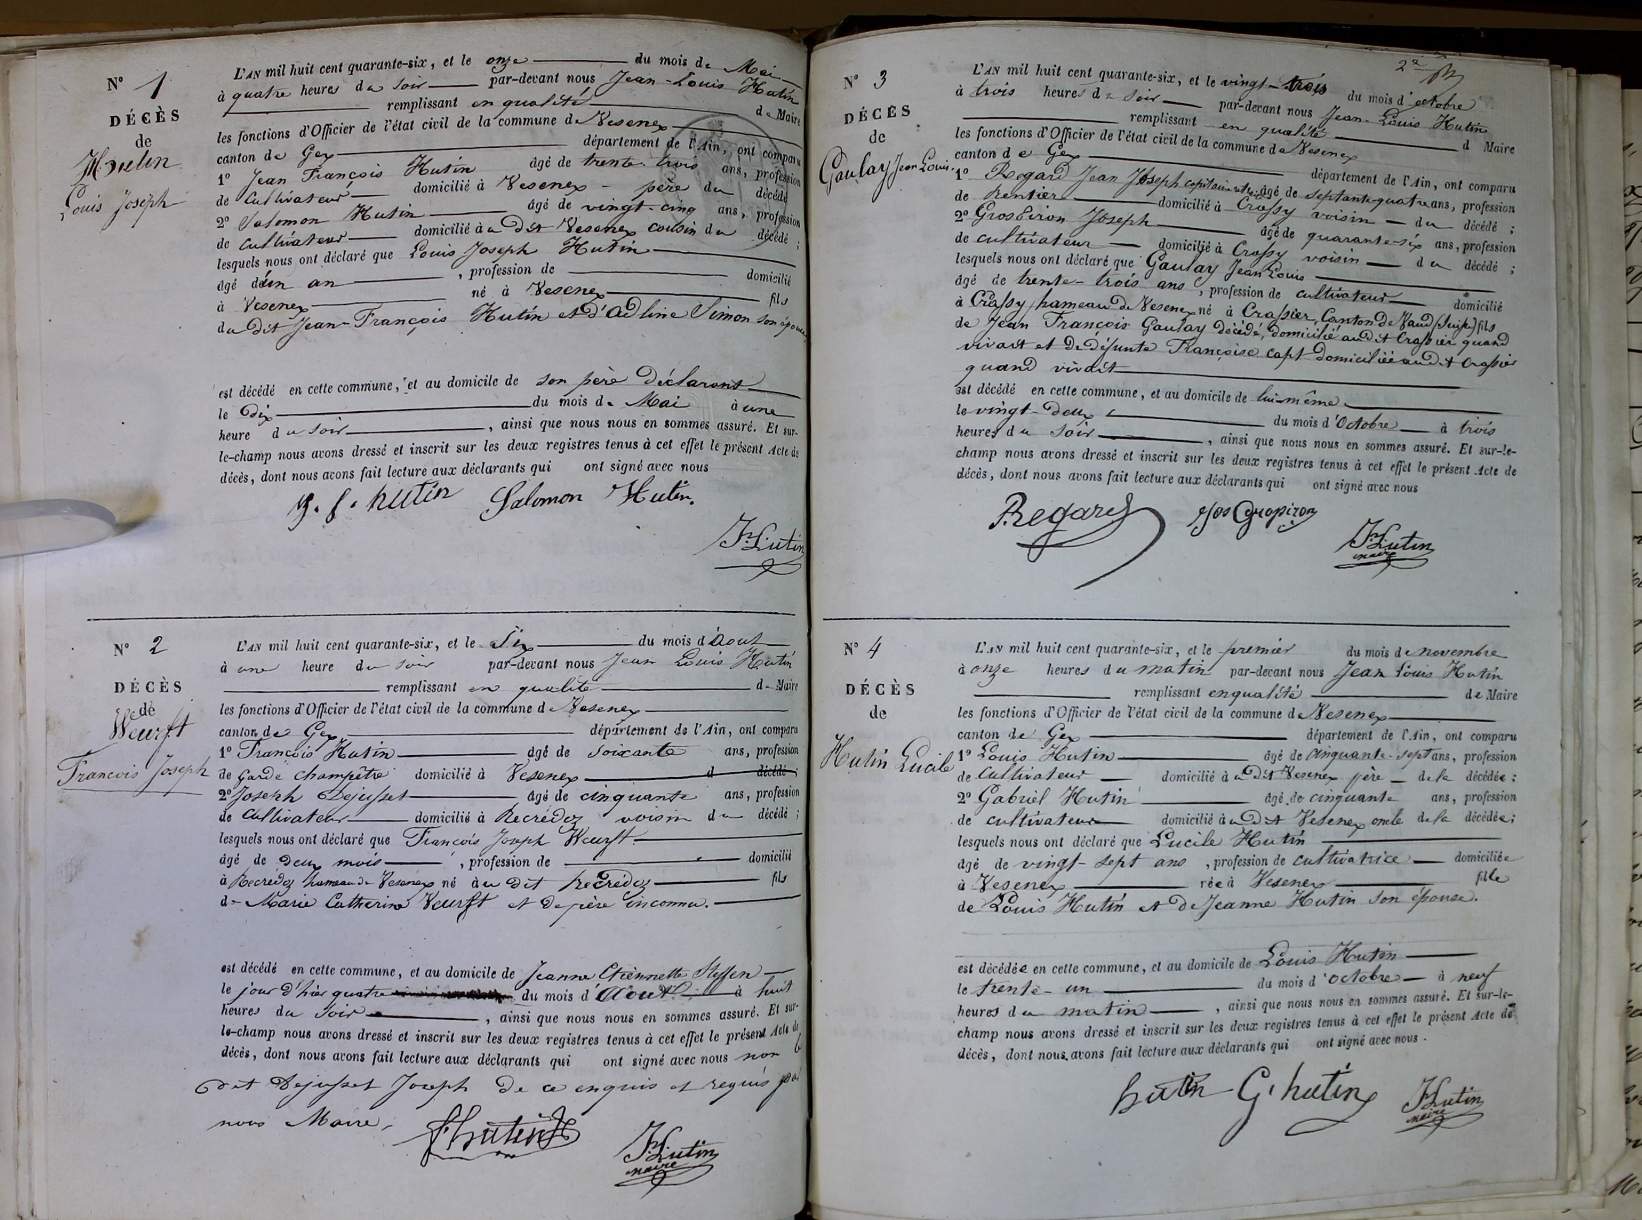 N° 1
DÉCÈS
de
Hutin
Louis Joseph
L'AN mil huit cent quarante-six, et le onze du mois de Mai
à quatre heures du soir par-devant nous Jean-Louis Hutin
remplissant en qualité de Maire
les fonctions d'Officier de l'état civil de la commune de Vesenex
canton de Gex département de l'Ain, ont comparu
1° Jean François Hutin âgé de trente trois ans, profession
de cultivateur domicilié à Vesenex père du décédé
2° Salomon Hutin âgé de vingt-cinq ans, profession
de cultivateur domicilié au dit Vesenex cousin du décédé ;
lesquels nous ont déclaré que Louis Joseph Hutin
âgé d'un an , profession de domicilié
à Vesenex né à Vesenex fils
du dit Jean-François Hutin et d'Adline Simon son épouse
est décédé en cette commune, et au domicile de son père déclarant
le dix du mois de Mai à une
heure du soir , ainsi que nous nous en sommes assuré. Et sur-
le-champ nous avons dressé et inscrit sur les deux registres tenus à cet effet le présent Acte de
décès, dont nous avons fait lecture aux déclarants qui ont signé avec nous
J. f. hutin Salomon Hutin.
JLHutin
N° 2
DÉCÈS
de
Weurft
François Joseph
L'AN mil huit cent quarante-six, et le Six du mois d'Aout
à une heure du soir par-devant nous Jean Louis Hutin
remplissant en qualité de Maire
les fonctions d'Officier de l'état civil de la commune de Vesenex
canton de Gex département de l'Ain, ont comparu
1° François Hutin âgé de soixante ans, profession
de garde champêtre domicilié à Vesenex d décédé ;
2° Joseph Dejusset âgé de cinquante ans, profession
de cultivateur domicilié à Recrédoz voisin du décédé ;
lesquels nous ont déclaré que François Joseph Weurft
âgé de deux mois , profession de domicilié
à Recrédoz hameau de Vesenex né au dit Recrédoz fils
de Marie Catherine Veurft et de père inconnu.
est décédé en cette commune, et au domicile de Jeanne Etiennette Steffen
le jour d'hier quatre du mois d'Aout à huit
heures du soir , ainsi que nous nous en sommes assuré. Et sur-
le-champ nous avons dressé et inscrit sur les deux registres tenus à cet effet le présent Acte de
décès, dont nous avons fait lecture aux déclarants qui ont signé avec nous non
dit Dejusset Joseph de ce enquis et requis par
nous Maire.
f. hutin
JLHutin
maire
2e
N° 3
DÉCÈS
de
Gaulay Jean Louis
L'AN mil huit cent quarante-six, et le vingt-trois du mois d'octobre
à trois heures du soir par-devant nous Jean-Louis Hutin
remplissant en qualité d Maire
les fonctions d'Officier de l'état civil de la commune de Vesenex
canton de Gex département de l'Ain, ont comparu
1° Regard Jean Joseph capitaine âgé de septante quatre ans, profession
de Rentier domicilié à Crassy voisin du décédé ;
2° Grospiron Joseph âgé de quarante-six ans, profession
de cultivateur domicilié à Crassy voisin du décédé ;
lesquels nous ont déclaré que Gaulay Jean Louis
âgé de trente-trois ans , profession de cultivateur domicilié
à Crassy, hameau de Vesenex né à Crassier, Canton de Vaud (Suisse) fils
de Jean François Gaulay décédé, domicilié audit Crassier quand
vivait et de défunte Françoise Capt domiciliée audit Crassier
quand vivait
est décédé en cette commune, et au domicile de lui-même
le vingt-deux du mois d'Octobre à trois
heures du soir , ainsi que nous nous en sommes assuré. Et sur-le-
champ nous avons dressé et inscrit sur les deux registres tenus à cet effet le présent Acte de
décès, dont nous avons fait lecture aux déclarants qui ont signé avec nous
Regard Jos Grospiron
JLHutin
maire
N° 4
DÉCÈS
de
Hutin Lucile
L'AN mil huit cent quarante-six, et le premier du mois de novembre
à onze heures du matin par-devant nous Jean Louis Hutin
remplissant en qualité de Maire
les fonctions d'Officier de l'état civil de la commune de Vesenex
canton de Gex département de l'Ain, ont comparu
1° Louis Hutin âgé de cinquante-sept ans, profession
de cultivateur domicilié audit Vesenex père de la décédée ;
2° Gabriel Hutin âgé de cinquante ans, profession
de cultivateur domicilié au dit Vesenex oncle de la décédée ;
lesquels nous ont déclaré que Lucile Hutin
âgé de vingt-sept ans , profession de cultivatrice domiciliée
à Vesenex née à Vesenex fille
de Louis Hutin et de Jeanne Hutin son épouse.
est décédée en cette commune, et au domicile de Louis Hutin
le trente-un du mois d'octobre à neuf
heures du matin , ainsi que nous nous en sommes assuré. Et sur-le-
champ nous avons dressé et inscrit sur les deux registres tenus à cet effet le présent Acte de
décès, dont nous avons fait lecture aux déclarants qui ont signé avec nous.
hutin G. hutin JLHutin
maire